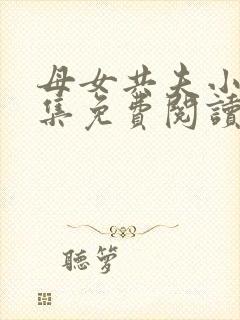 母女共夫小
集免費閱讀
聽夢